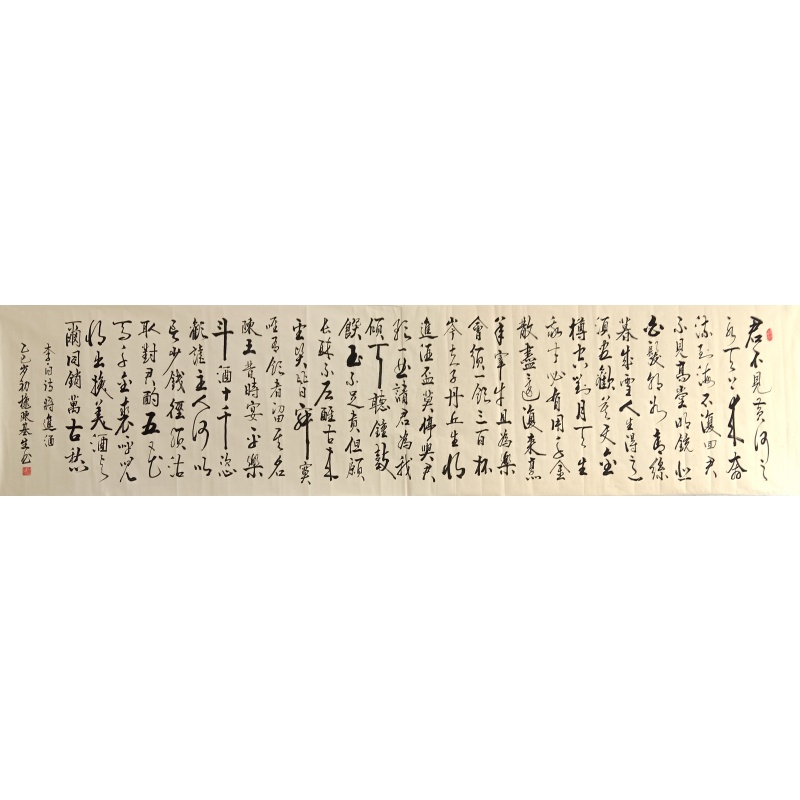 君不見黃河之
水天上來奔
流到海不復回君
不見高堂明鏡悲
白髮朝如青絲
暮成雪人生得意
須盡歡莫使金
樽空對月天生
我才必有用千金
散盡還復來烹
羊宰牛且為樂
會須一飲三百杯
岑夫子丹丘生將
進酒盃莫停與君
歌一曲請君為我
傾耳聽鐘鼓
饌玉不足貴但願
長醉不醒古來
聖賢皆寂寞
唯有飲者留其名
陳王昔時宴平樂
斗酒十千恣
歡謔主人何以
言少錢徑須沽
取對君酌五花
馬千金裘呼兒
將出換美酒與
爾同銷萬古愁
李白詩將進酒
乙巳初